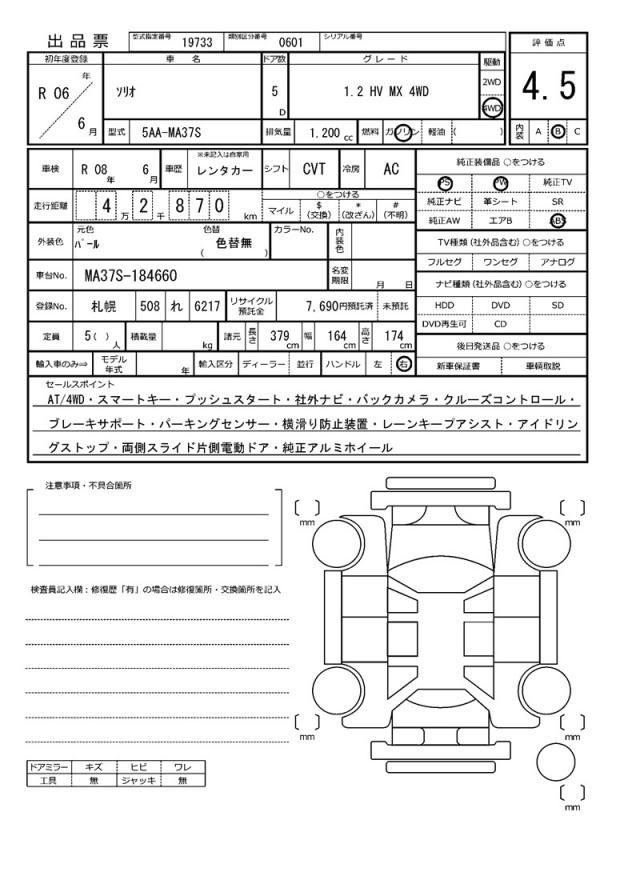 出品票 型式指定番号 19733 類別区分番号 0601 シリアル番号
評価点
4.5
内装 A B C
初年度登録 車名 ドア数 グレード 駆動
R 06 年 6 月
ソリオ 5 D 1.2 HV MX 4WD 2WD 4WD
型式 5AA-MA37S 排気量 1.200 cc 燃料 ガソリン 軽油 ( )
車検 R 08 年 6 月 車歴 ※未記入は自家用 レンタカー シフト CVT 冷房 AC
走行距離 4 万 2 千 8 7 0 km
○をつける
マイル $(交換) *(改ざん) #(不明)
外装色 元色 パール 色替 色替無 ( ) カラーNo. 内装色
車台No. MA37S-184660 名変期限 月 日
登録No. 札幌 508 れ 6217 リサイクル預託金 7,690円預託済 未預託
定員 5( )人 積載量 kg 諸元 長さ 379 cm 幅 164 cm 高さ 174 cm
輸入車のみ⇒ モデル年式 年 輸入区分 ディーラー 並行 ハンドル 左 右
純正装備品 ○をつける
PS PW 純正TV
純正ナビ 革シート SR
純正AW エアB ABS
TV種類 (社外品含む) ○をつける
フルセグ ワンセグ アナログ
ナビ種類 (社外品含む) ○をつける
HDD DVD SD
DVD再生可 CD
後日発送品 ○をつける
新車保証書 車輌取説
セールスポイント
AT/4WD・スマートキー・プッシュスタート・社外ナビ・バックカメラ・クルーズコントロール・
ブレーキサポート・パーキングセンサー・横滑り防止装置・レーンキープアシスト・アイドリン
グストップ・両側スライド片側電動ドア・純正アルミホイール
注意事項・不具合箇所
検査員記入欄:修復歴「有」の場合は修復箇所・交換箇所を記入
ドアミラー キズ ヒビ ワレ
工具 無 ジャッキ 無
mm
mm
mm
mm
mm